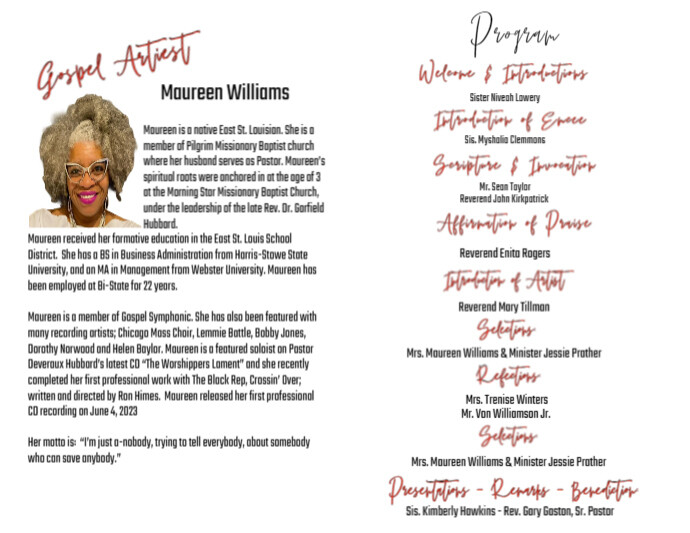 Gospel Artiest
Maureen Williams
Maureen is a native East St. Louisian. She is a
member of Pilgrim Missionary Baptist church
where her husband serves as Pastor. Maureen's
spiritual roots were anchored in at the age of 3
at the Morning Star Missionary Baptist Church,
under the leadership of the late Rev. Dr. Garfield
Hubbard.
Maureen received her formative education in the East St. Louis School
District. She has a BS in Business Administration from Harris-Stowe State
University, and an MA in Management from Webster University. Maureen has
been employed at Bi-State for 22 years.
Maureen is a member of Gospel Symphonic. She has also been featured with
many recording artists; Chicago Mass Choir, Lemmie Battle, Bobby Jones,
Dorothy Norwood and Helen Baylor. Maureen is a featured soloist on Pastor
Deveraux Hubbard's latest CD "The Worshippers Lament" and she recently
completed her first professional work with The Black Rep, Crossin' Over;
written and directed by Ron Himes. Maureen released her first professional
CD recording on June 4, 2023
Her motto is: "I'm just a-nobody, trying to tell everybody, about somebody
who can save anybody."
Program
Welcome & Introductions
Sister Niveah Lowery
Introduction of Emcee
Sis. Myshalia Clemmons
Scripture & Invocation
Mr. Sean Taylor
Reverend John Kirkpatrick
Affirmation of Praise
Reverend Enita Rogers
Introduction of Artist
Reverend Mary Tillman
Selections
Mrs. Maureen Williams & Minister Jessie Prather
Reflections
Mrs. Trenise Winters
Mr. Van Williamson Jr.
Selections
Mrs. Maureen Williams & Minister Jessie Prather
Presentations - Remarks - Benediction
Sis. Kimberly Hawkins - Rev. Gary Gaston, Sr. Pastor